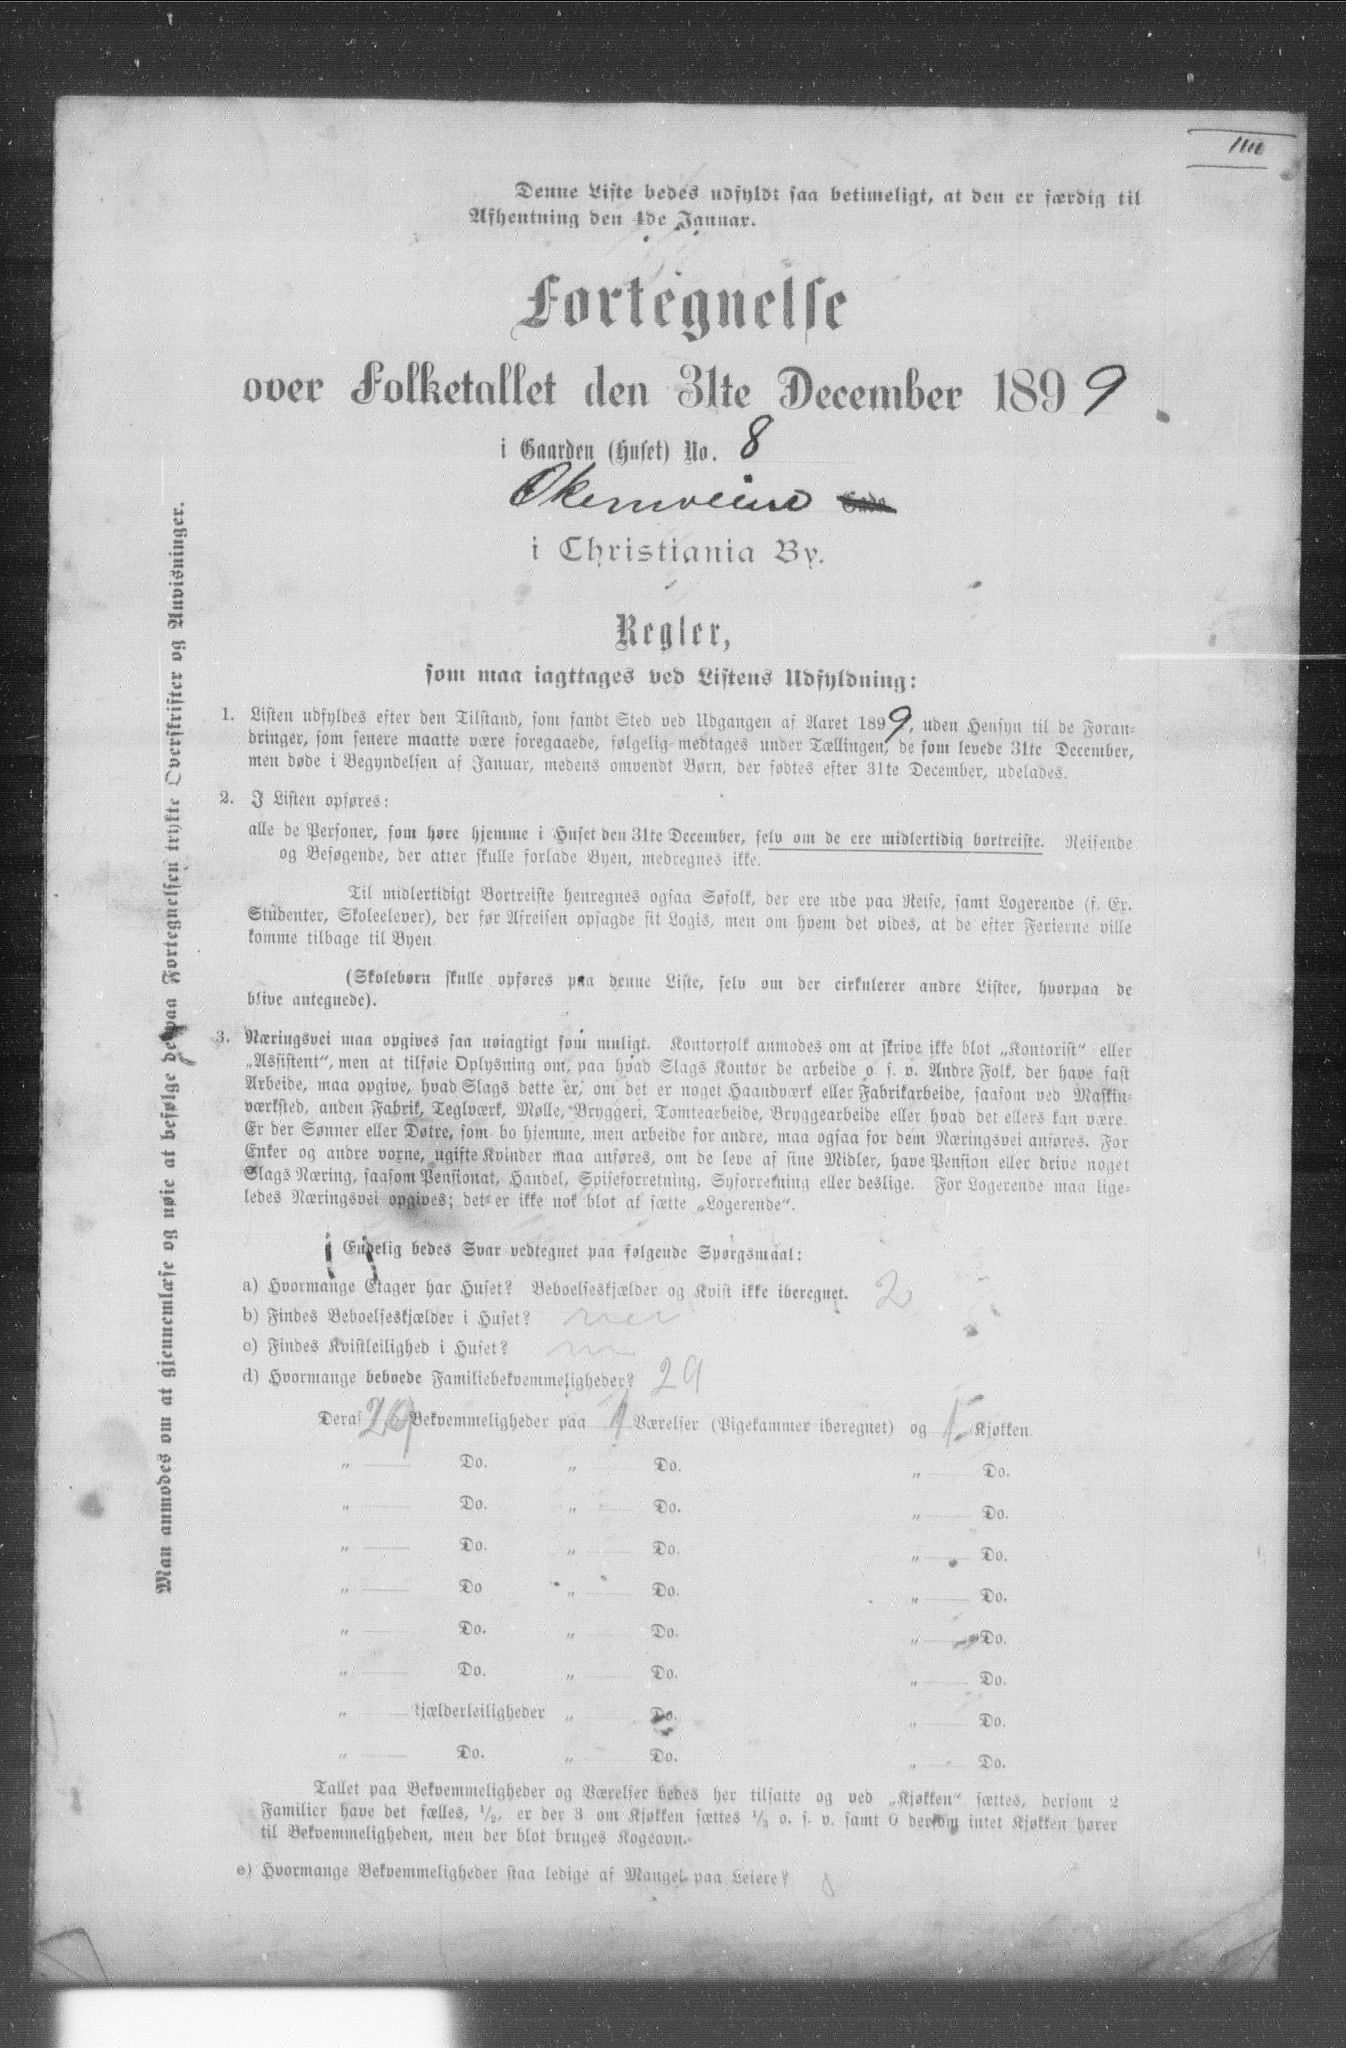 Denne Liste bedes udfyldt saa betimeligt, at den er færdig til
Afhentning den 4de Januar.
Fortegnelse
over Folketallet den 31te December 1899
i Gaarden (Huset) No. 8
Økernveien Gade
i Christiania By.
Regler,
som maa iagttages ved Listens Udfyldning:
1. Listen udfyldes efter den Tilstand, som fandt Sted ved Udgangen af Aaret 1899, uden Hensyn til de Foran-
dringer, som senere maatte være foregaaede, følgelig medtages under Tællingen, de som levede 31te December,
men døde i Begyndelsen af Januar, medens omvendt Børn, der fødtes efter 31te December, udelades.
2. I Listen opføres:
alle de Personer, som høre hjemme i Huset den 31te December, selv om de ere midlertidig bortreiste. Reisende
og Besøgende, der atter skulle forlade Byen, medregnes ikke.
Til midlertidigt Bortreiste henregnes ogsaa Søfolk, der ere ude paa Reise, samt Logerende (f. Ex.
Studenter, Skoleelever), der før Afreisen opsagde sit Logis, men om hvem det vides, at de efter Ferierne ville
komme tilbage til Byen.
(Skolebørn skulle opføres paa denne Liste, selv om der cirkulerer andre Lister, hvorpaa de
blive antegnede).
3. Næringsvei maa opgives saa nøiagtigt som muligt. Kontorfolk anmodes om at skrive ikke blot „Kontorist“ eller
„Assistent“, men at tilføie Oplysning om, paa hvad Slags Kontor de arbeide o. s. v. Andre Folk, der have fast
Arbeide, maa opgive, hvad Slags dette er, om det er noget Haandværk eller Fabrikarbeide, saasom ved Maskin-
værksted, anden Fabrik, Teglværk, Mølle, Bryggeri, Tomtearbeide, Bryggearbeide eller hvad det ellers kan være.
Er der Sønner eller Døtre, som bo hjemme, men arbeide for andre, maa ogsaa for dem Næringsvei anføres. For
Enker og andre voxne, ugifte Kvinder maa anføres, om de leve af sine Midler, have Pension eller drive noget
Slags Næring, saasom Pensionat, Handel, Spiseforretning, Syforretning eller deslige. For Logerende maa lige-
ledes Næringsvei opgives; det er ikke nok blot at sætte „Logerende“.
Endelig bedes Svar vedtegnet paa følgende Spørgsmaal:
a) Hvormange Etager har Huset? Beboelseskjælder og Kvist ikke iberegnet. 2
b) Findes Beboelseskjælder i Huset? nei
c) Findes Kvistleilighed i Huset?
d) Hvormange beboede Familiebekvemmeligheder? 29
Deraf 29 Bekvemmeligheder paa 1 Værelser (Pigekammer iberegnet) og 1 Kjøkken.
„ Do. „ Do. „ Do.
„ Do. „ Do. „ Do.
„ Do. „ Do. „ Do.
„ Do „ Do. „ Do.
„ Do. „ Do. „ Do.
„ Do. „ Do. „ Do.
„ Kjælderleiligheder „ Do. „ Do.
„ Do. „ Do. „ Do.
Tallet paa Bekvemmeligheder og Værelser bedes her tilsatte og ved „Kjøkken“ sættes, dersom 2
Familier have det fælles, 1/2, er der 3 om Kjøkken sættes 1/3 o. s. v. samt 0 dersom intet Kjøkken hører
til Bekvemmeligheden, men der blot bruges Kogeovn.
e) Hvormange Bekvemmeligheder staa ledige af Mangel paa Leiere?
Man anmodes om at gjennemlæse og nøie at befølge de paa Fortegnelsen trykte Overskrifter og Anvisninger.